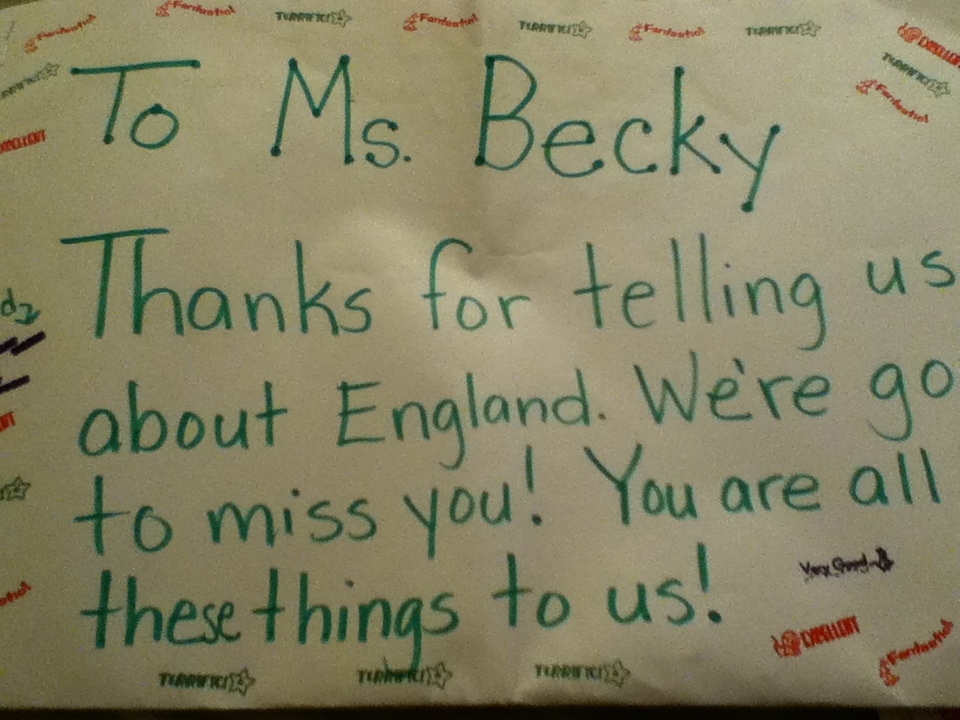 Fantastic! Fantastic! TERRIFIC! Fantastic! TERRIFIC! Fantastic! TERRIFIC! EXCELLENT
TERRIFIC! Fantastic!
To Ms. Becky
Thanks for telling us
about England. We're go
to miss you! You are all
these things to us!
Very Good
EXCELLENT
Fantastic!
TERRIFIC! TERRIFIC! TERRIFIC!